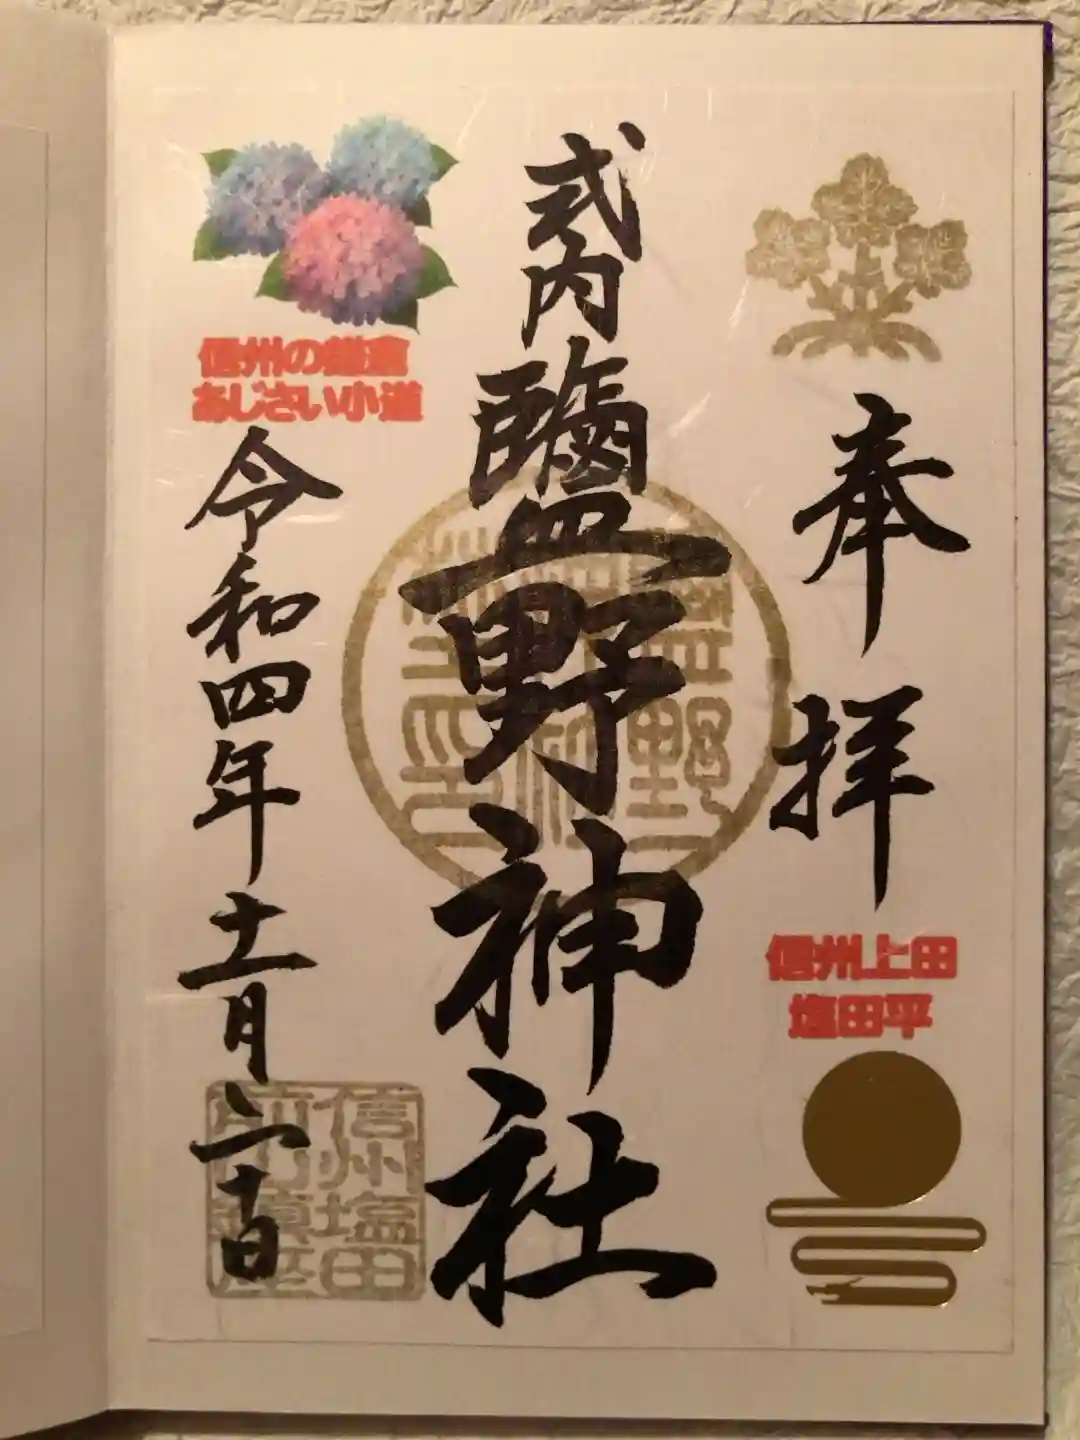 奉拝
信州上田
塩田平
式内鹽野神社
信州の鎌倉
あじさい小道
令和四年十一月二十日
信州塩田
前山鎮座